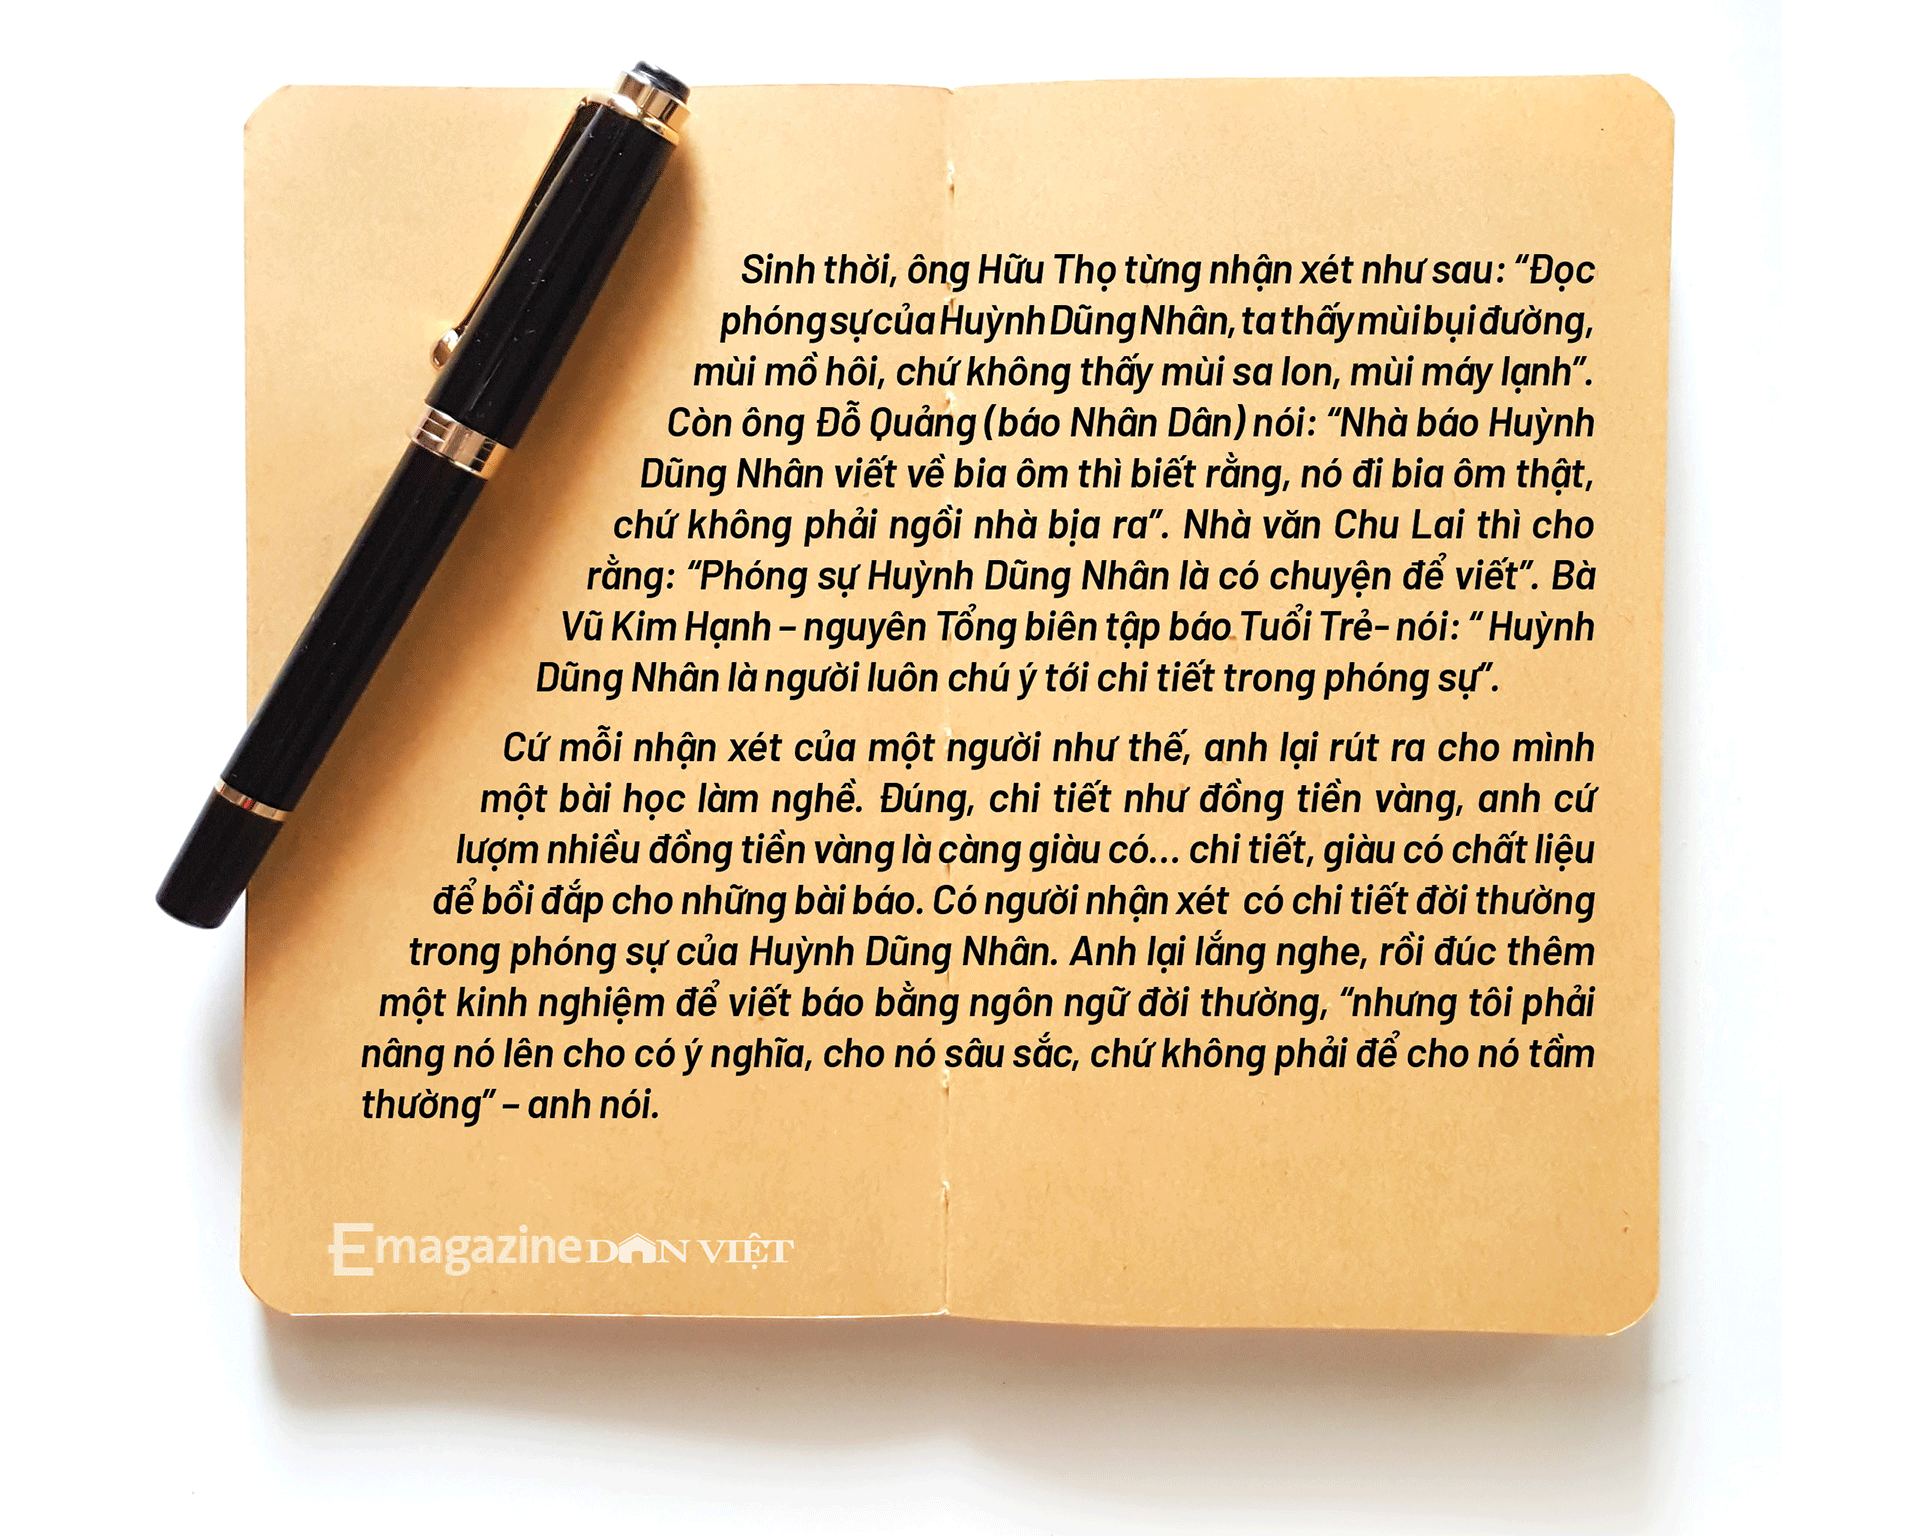 Sinh thời, ông Hữu Thọ từng nhận xét như sau: “Đọc
phóng sự của Huỳnh Dũng Nhân, ta thấy mùi bụi đường,
mùi mồ hôi, chứ không thấy mùi sa lon, mùi máy lạnh”.
Còn ông Đỗ Quảng (báo Nhân Dân) nói: “Nhà báo Huỳnh
Dũng Nhân viết về bia ôm thì biết rằng, nó đi bia ôm thật,
chứ không phải ngồi nhà bịa ra”. Nhà văn Chu Lai thì cho
rằng: “Phóng sự Huỳnh Dũng Nhân là có chuyện để viết”. Bà
Vũ Kim Hạnh – nguyên Tổng biên tập báo Tuổi Trẻ- nói: “ Huỳnh
Dũng Nhân là người luôn chú ý tới chi tiết trong phóng sự”.
Cứ mỗi nhận xét của một người như thế, anh lại rút ra cho mình
một bài học làm nghề. Đúng, chi tiết như đồng tiền vàng, anh cứ
lượm nhiều đồng tiền vàng là càng giàu có... chi tiết, giàu có chất liệu
để bồi đắp cho những bài báo. Có người nhận xét  có chi tiết đời thường
trong phóng sự của Huỳnh Dũng Nhân. Anh lại lắng nghe, rồi đúc thêm
một kinh nghiệm để viết báo bằng ngôn ngữ đời thường, “nhưng tôi phải
nâng nó lên cho có ý nghĩa, cho nó sâu sắc, chứ không phải để cho nó tầm
thường” – anh nói.
Emagazine DÂN VIỆT